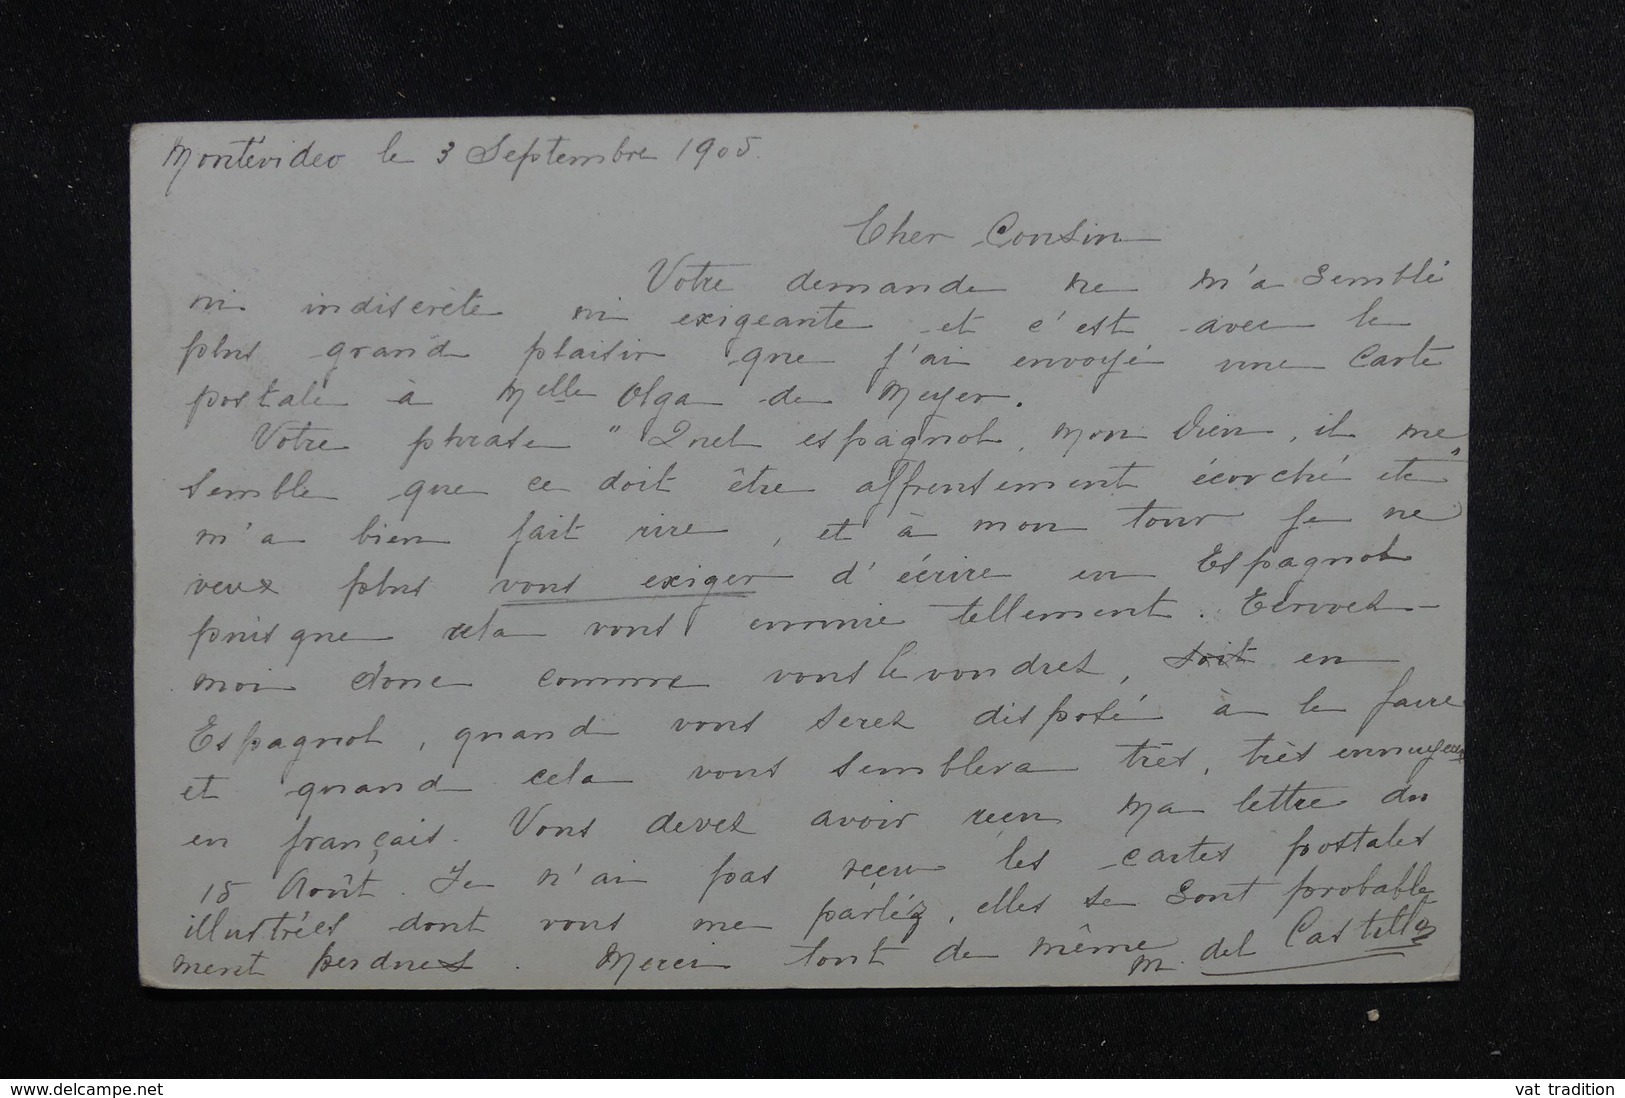 Montévideo le 3 Septembre 1905.
Cher Cousin
Votre demande ne m'a semblé
ni indiscrète ni exigeante et c'est avec le
plus grand plaisir que j'ai envoyé une Carte
postale à Melle Olga de Meyer.
Votre phrase "Quel espagnol, mon Dieu, il me
semble que ce doit être affreusement écorché etc"
m'a bien fait rire, et à mon tour je ne
veux plus vous exiger d'écrire en Espagnol
puisque cela vous ennuie tellement. Ecrivez-
moi donc comme vous le voudrez, soit en
Espagnol, quand vous serez disposé à le faire
et quand cela vous semblera très, très ennuyeux
en français. Vous devez avoir reçu ma lettre du
15 Août. Je n'ai pas reçu les cartes postales
illustrées dont vous me parléz, elles se sont probable
ment perdues. Merci tout de même
M. del Castillo
www.delcampe.net
vat tradition